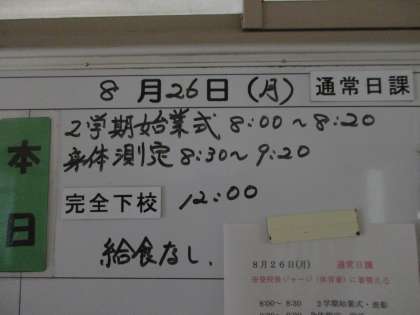 8月26日(月) 通常日課
本日
2学期始業式 8:00～8:20
身体測定 8:30～9:20
完全下校 12:00
給食なし.
8月26日(月) 通常日課
8:00～ 8:30 2学期始業式・表彰